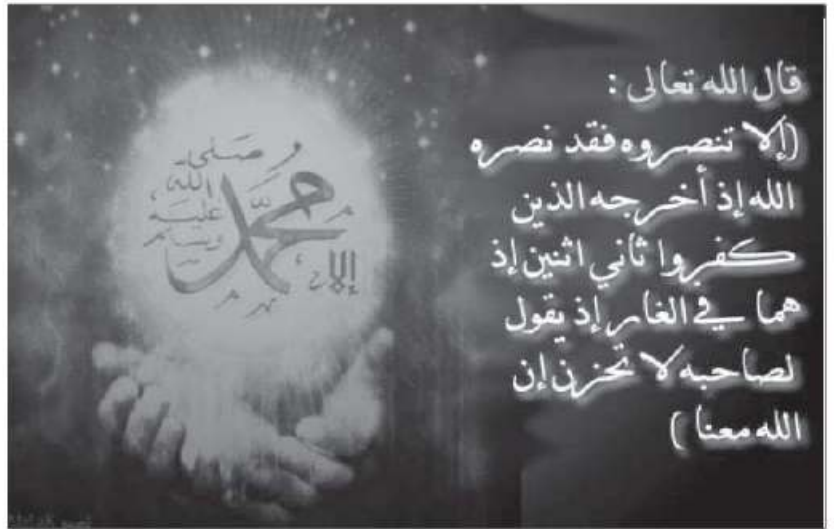 قال الله تعالى :
(إلا تنصروه فقد نصره
الله إذ أخرجه الذين
كفروا ثاني اثنين إذ
هما في الغار إذ يقول
لصاحبه لا تحزن إن
الله معنا )
إلا
محمد
صلى
الله
عليه
وسلم